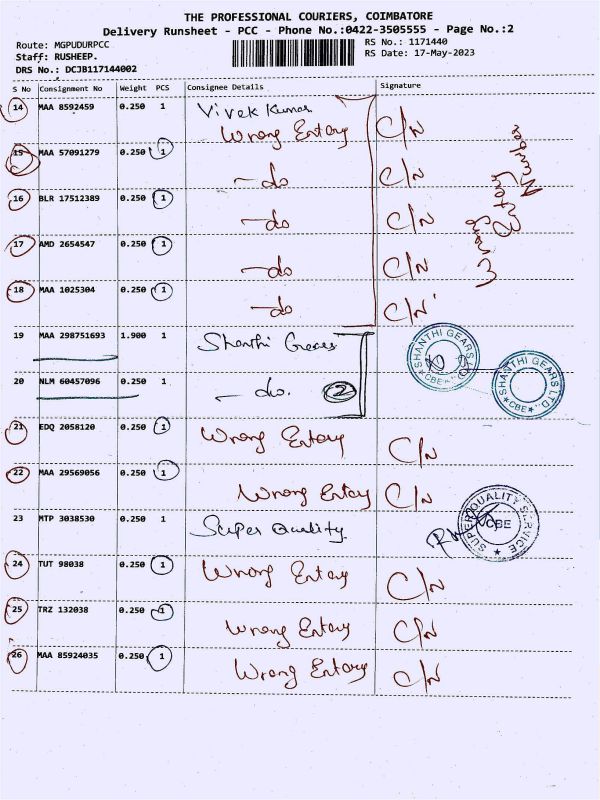 THE PROFESSIONAL COURIERS, COIMBATORE
Delivery Runsheet - PCC - Phone No.:0422-3505555 - Page No.:2
Route: MGPUDURPCC RS No.: 1171440
Staff: RUSHEEP. RS Date: 17-May-2023
DRS No.: DCJB117144002
S No Consignment No Weight PCS Consignee Details Signature
14 MAA 8592459 0.250 1 Vivek Kumar
Wrong Entary C/N
15 MAA 57091279 0.250 1 -do C/N
16 BLR 17512389 0.250 1 -do C/N
17 AMD 2654547 0.250 1 -do C/N
18 MAA 1025304 0.250 1 -do C/N
Wrong Entery Number
19 MAA 298751693 1.900 1 Shanthi Gears
SHANTHI GEARS LTD. CBE
20 NLM 60457096 0.250 1 - do. 2
SHANTHI GEARS LTD. CBE
21 EDQ 2058120 0.250 1 Wrong Entary C/N
22 MAA 29569056 0.250 1 Wrong Entay C/N
23 MTP 3038530 0.250 1 Super Quality
SUPER QUALITY SERVICE CBE
24 TUT 98038 0.250 1 Wrong Entary C/N
25 TRZ 132038 0.250 1 Wrong Entary C/N
26 MAA 85924035 0.250 1 Wrong Entary C/N